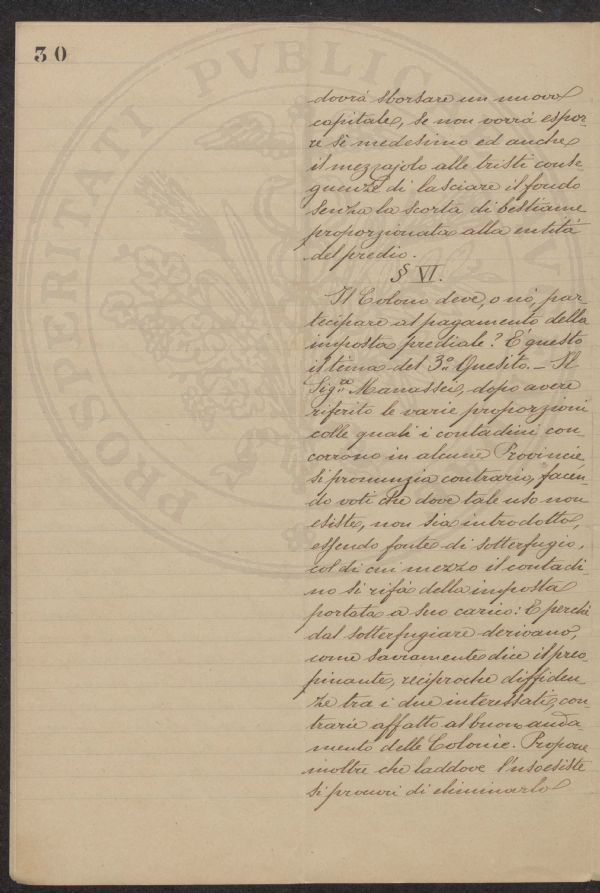 30
dovrà sborsare un nuovo
capitale, se non vorrà espor-
re sè medesimo ed anche
il mezzajolo alle tristi conse-
guenze di lasciare il fondo
senza la scorta di bestiame
proporzionata alla entità
del predio.
§ VI.
Il Colono deve, o nò, par-
tecipare al pagamento della
imposta prediale? È questo
il tèma del 3.º Quesito. _ Il
Sig.re Manassei, dopo avere
riferito le varie proporzioni
colle quali i contadini con-
corrono in alcune Provincie
si pronunzia contrario, facen-
do voti che dove tale uso non
esiste, non sia introdotto,
essendo fonte di sotterfugio,
col di cui mezzo il contadi-
no si rifà della imposta
portata a suo carico: E perchè
dal sotterfugiare derivano,
come saviamente dice il preo-
pinante, reciproche diffiden-
ze tra i due interessati, con-
trarie affatto al buon anda-
mento delle Colonìe. Propone
inoltre che laddove l'uso esiste
si procuri di eliminarlo
PROSPERITATI PVBLICAE